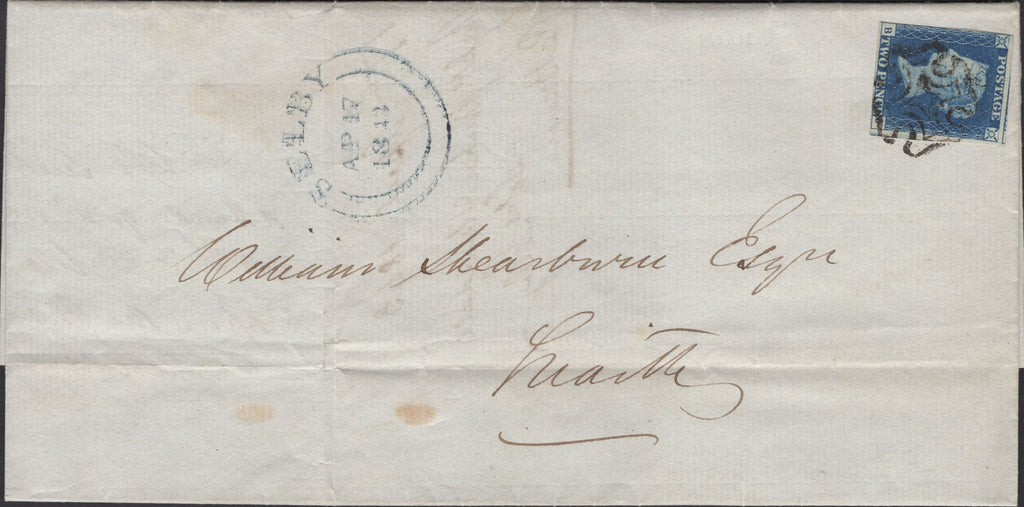 SELBY
AP 17
1843
POSTAGE
TWO PENCE
B
William Shearburn Esqre
Snaith